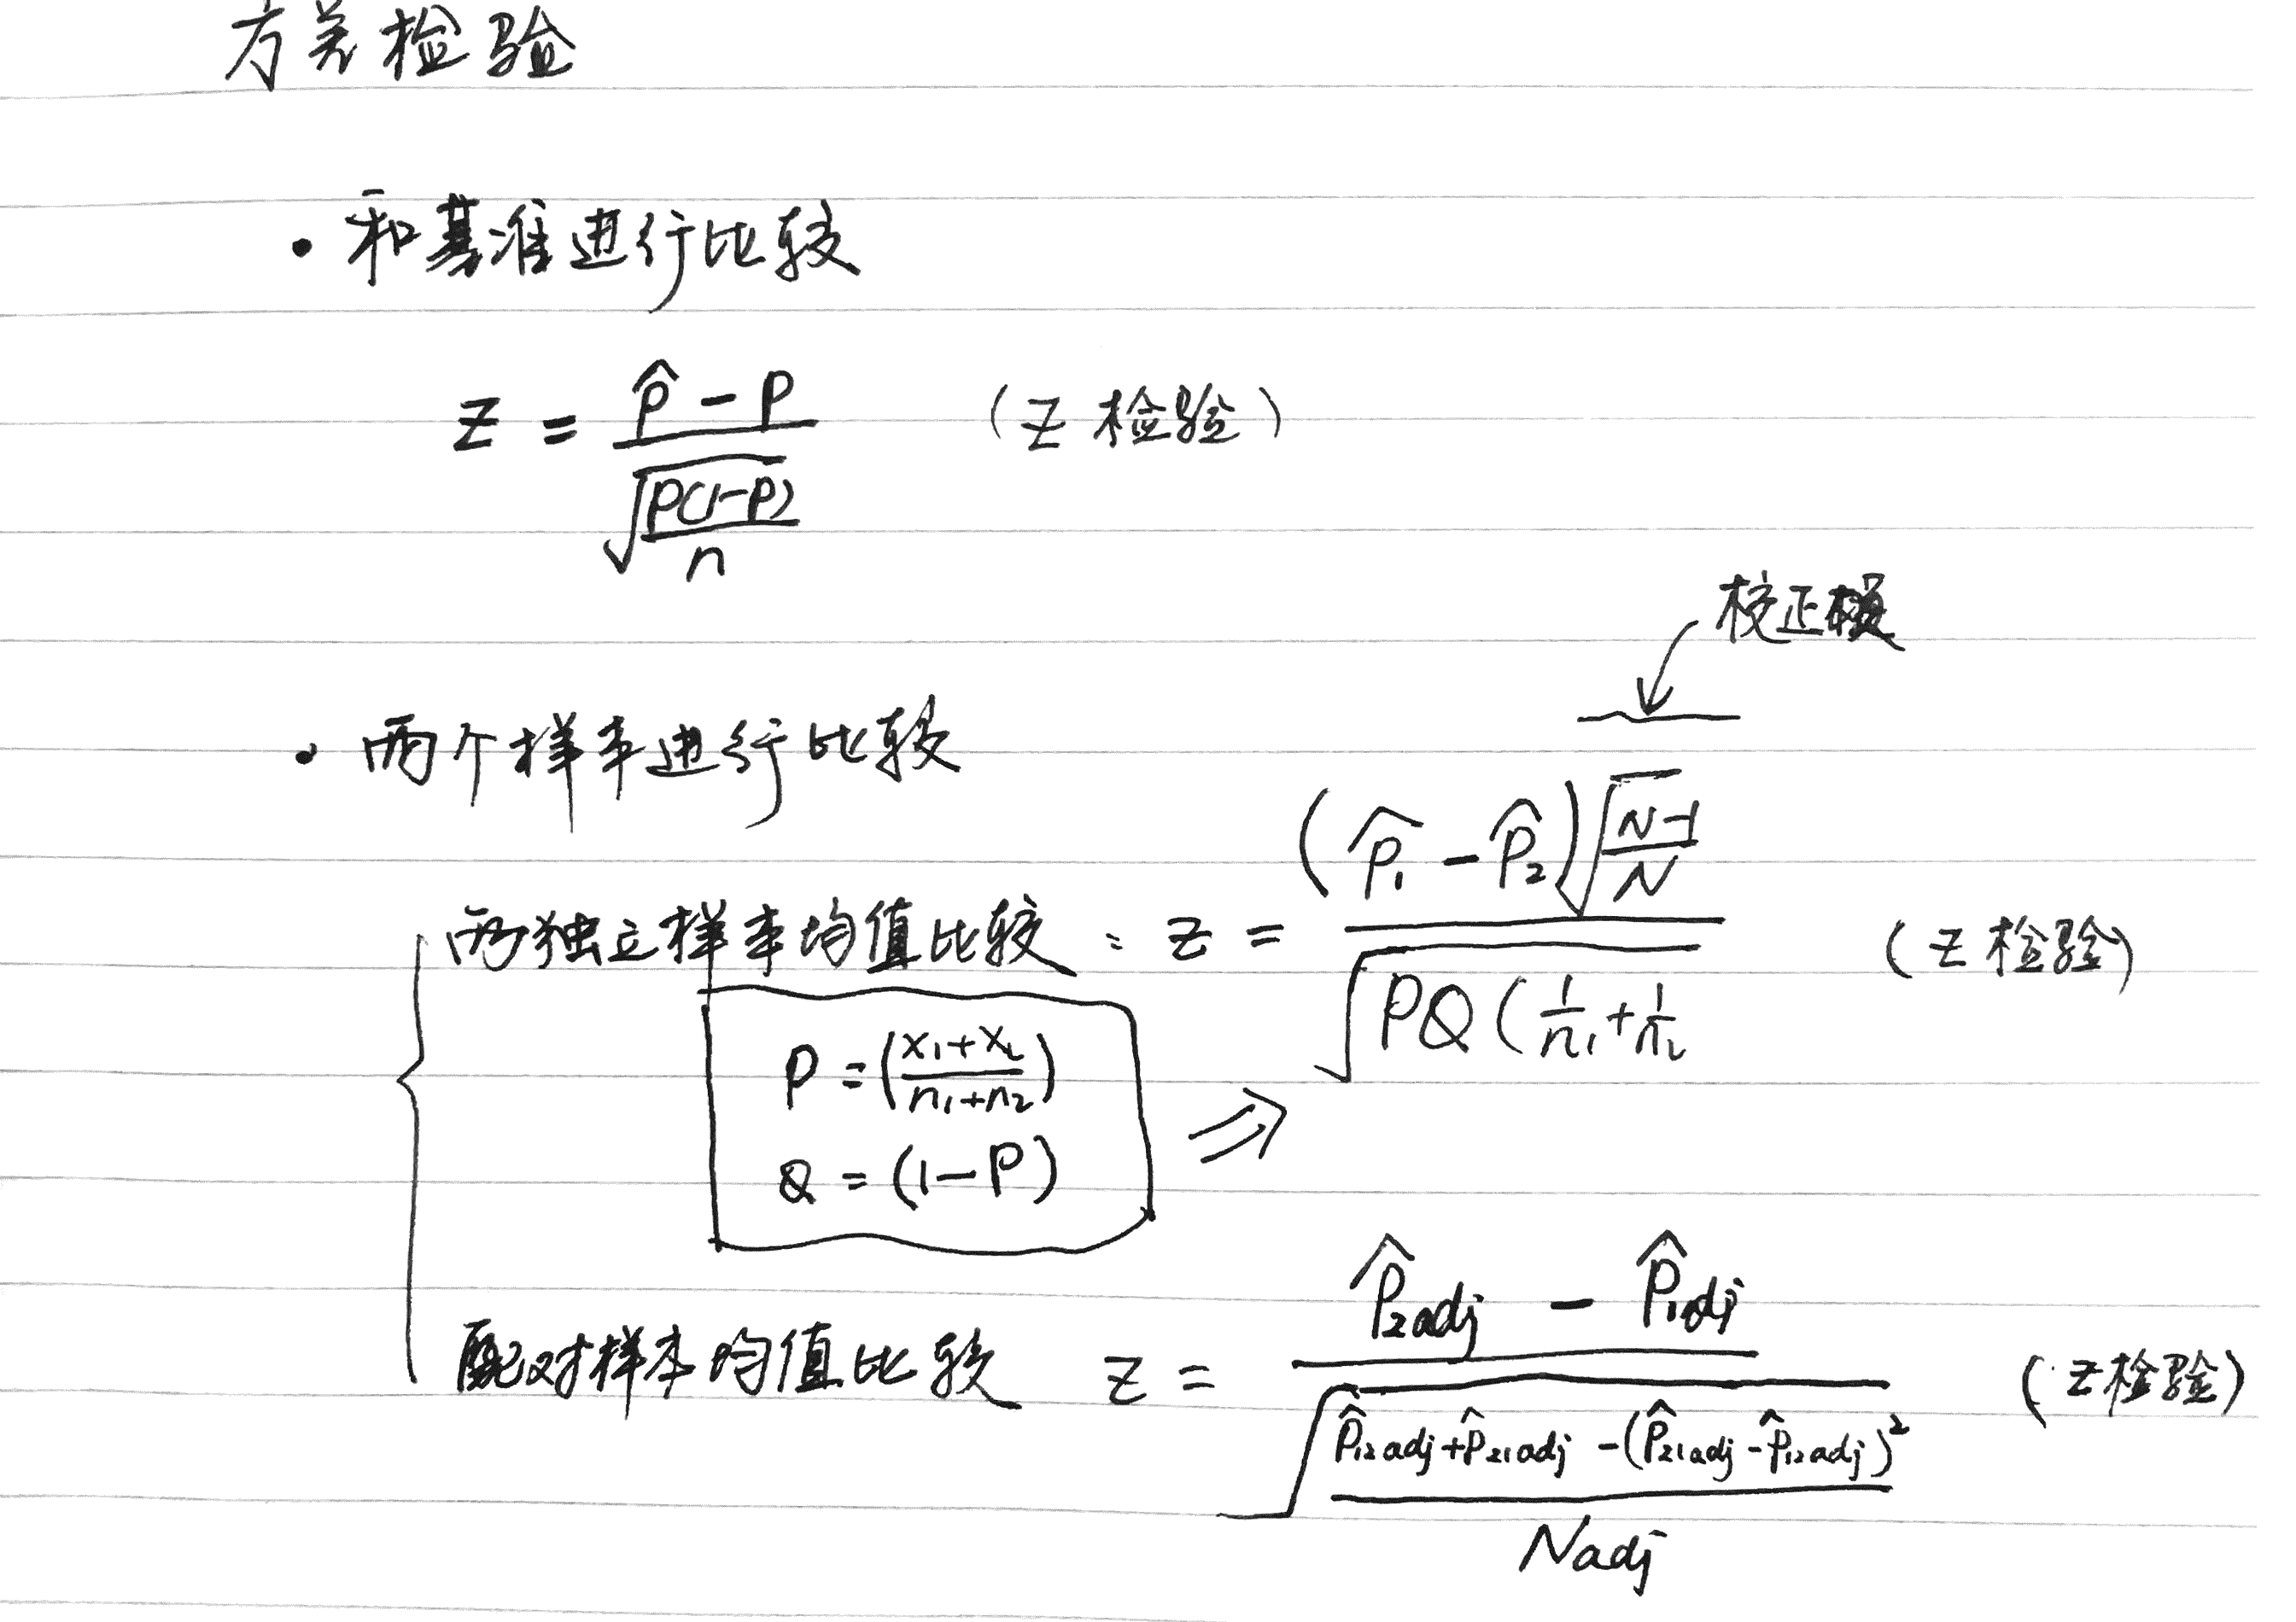 方差检验
• 和基准进行比较
z = (p̂ - p) / √(p(1-p)/n) （z 检验）
校正项
• 两个样本进行比较
两独立样本均值比较：z = (p̂₁ - p̂₂)√((N-1)/N) / √(PQ(1/n₁ + 1/n₂ （z 检验）
P = (x₁+x₂ / n₁+n₂)
Q = (1-P)
⇒
配对样本均值比较 z = (p̂₂adj - p̂₁adj) / √((p̂₁₂adj + p̂₂₁adj - (p̂₂₁adj - p̂₁₂adj)²) / Nadj) （z检验）